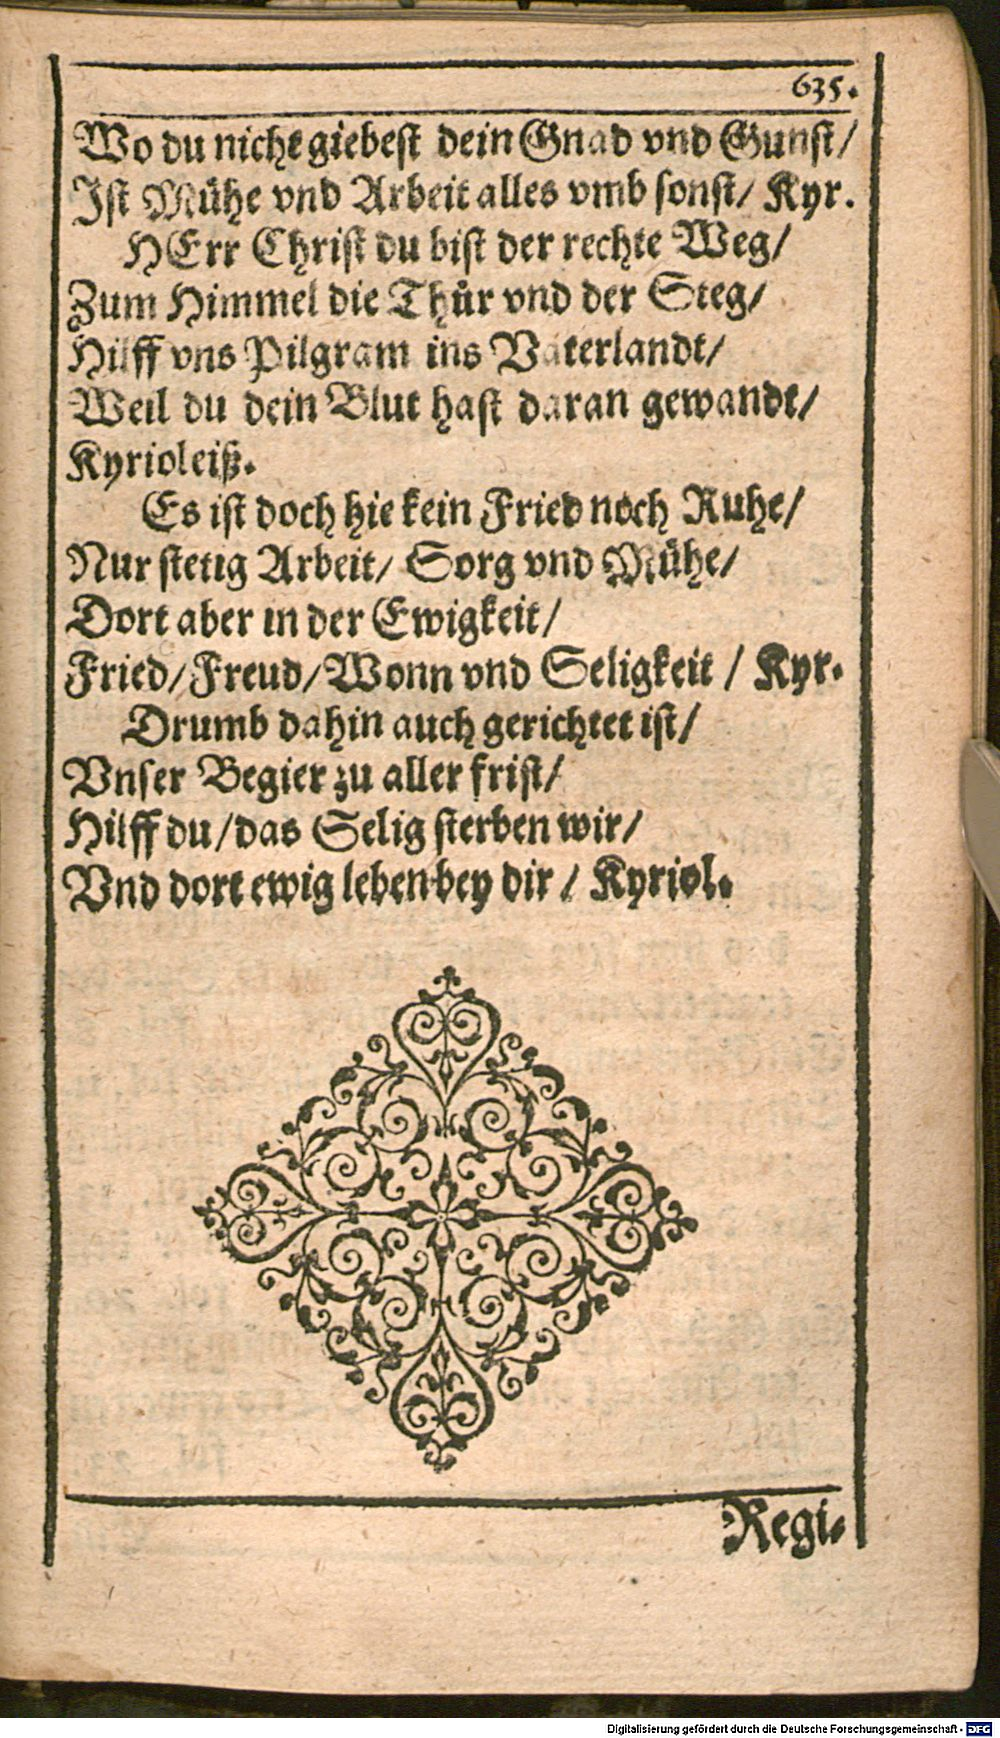 635.
Wo du nicht giebest dein Gnad vnd Gunst/
Ist Mühe vnd Arbeit alles vmb sonst/ Kyr.
HErr Christ du bist der rechte Weg/
Zum Himmel die Thür vnd der Steg/
Hilff vns Pilgram ins Vaterlandt/
Weil du dein Blut hast daran gewandt/
Kyrioleiß.
Es ist doch hie kein Fried noch Ruhe/
Nur stetig Arbeit/ Sorg vnd Mühe/
Dort aber in der Ewigkeit/
Fried/Freud/Wonn vnd Seligkeit / Kyr.
Drumb dahin auch gerichtet ist/
Vnser Begier zu aller frist/
Hilff du/das Selig sterben wir/
Vnd dort ewig leben bey dir / Kyriol.
Regi-
Digitalisierung gefördert durch die Deutsche Forschungsgemeinschaft - DFG